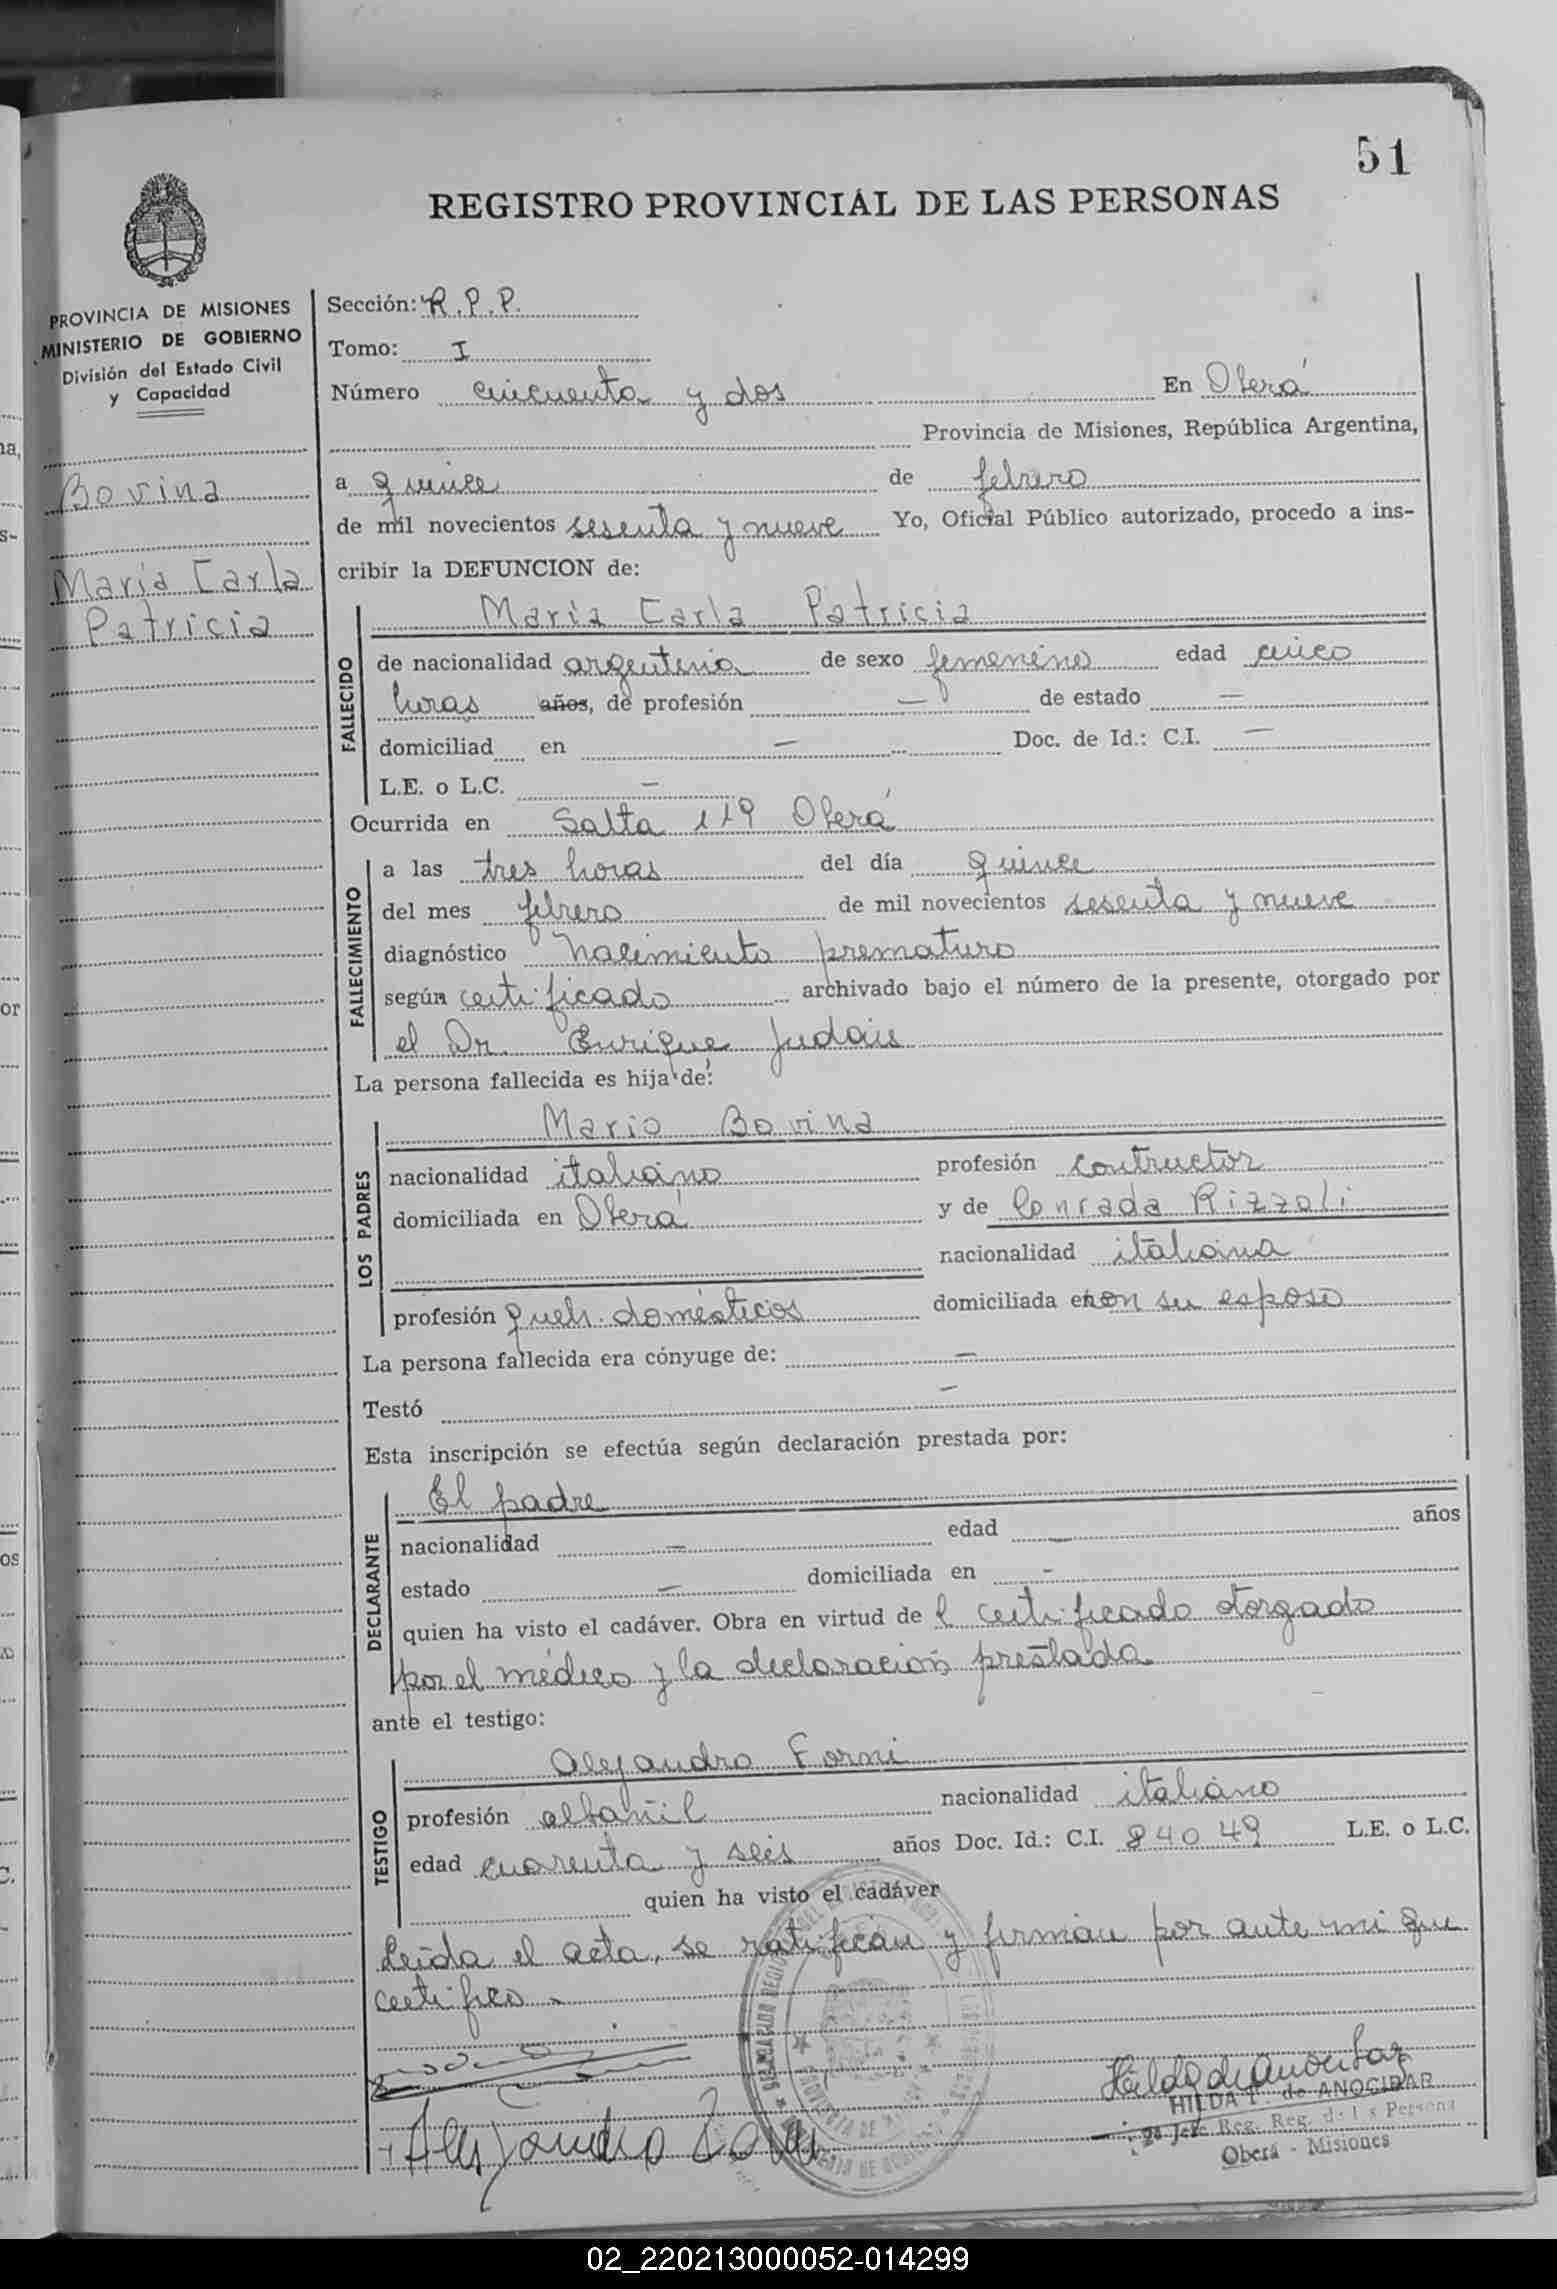 51
REGISTRO PROVINCIAL DE LAS PERSONAS
PROVINCIA DE MISIONES
MINISTERIO DE GOBIERNO
División del Estado Civil
y Capacidad
Bovina
María Carla
Patricia
Sección: R.P.P.
Tomo: I
Número cincuenta y dos En Oberá
Provincia de Misiones, República Argentina,
a quince de febrero
de mil novecientos sesenta y nueve Yo, Oficial Público autorizado, procedo a ins-
cribir la DEFUNCION de:
FALLECIDO
María Carla Patricia
de nacionalidad argentina de sexo femenino edad cinco
horas años, de profesión — de estado —
domiciliad en — Doc. de Id.: C.I. —
L.E. o L.C. —
Ocurrida en Salta 119 Oberá
FALLECIMIENTO
a las tres horas del día quince
del mes febrero de mil novecientos sesenta y nueve
diagnóstico Nacimiento prematuro
según certificado archivado bajo el número de la presente, otorgado por
el Dr. Enrique Judais
La persona fallecida es hija de:
LOS PADRES
Mario Bovina
nacionalidad italiano profesión contructor
domiciliada en Oberá y de Conrada Rizzoli
nacionalidad italiana
profesión queh. domésticos domiciliada con su esposo
La persona fallecida era cónyuge de: —
Testó —
Esta inscripción se efectúa según declaración prestada por:
DECLARANTE
El padre
nacionalidad — edad — años
estado — domiciliada en -
quien ha visto el cadáver. Obra en virtud de l certificado otorgado
por el médico y la declaración prestada
ante el testigo:
TESTIGO
Alejandro Forni
profesión albañil nacionalidad italiano
edad cuarenta y seis años Doc. Id.: C.I. 84049 L.E. o L.C.
quien ha visto el cadáver
Leída el acta, se ratifican y firman por ante mi que
certifico.
Alejandro
Hilda de Anocibar
HILDA T. de ANOCIBAR
2º Jefe Reg. Reg. de l s Persona
Oberá - Misiones
02_220213000052-014299